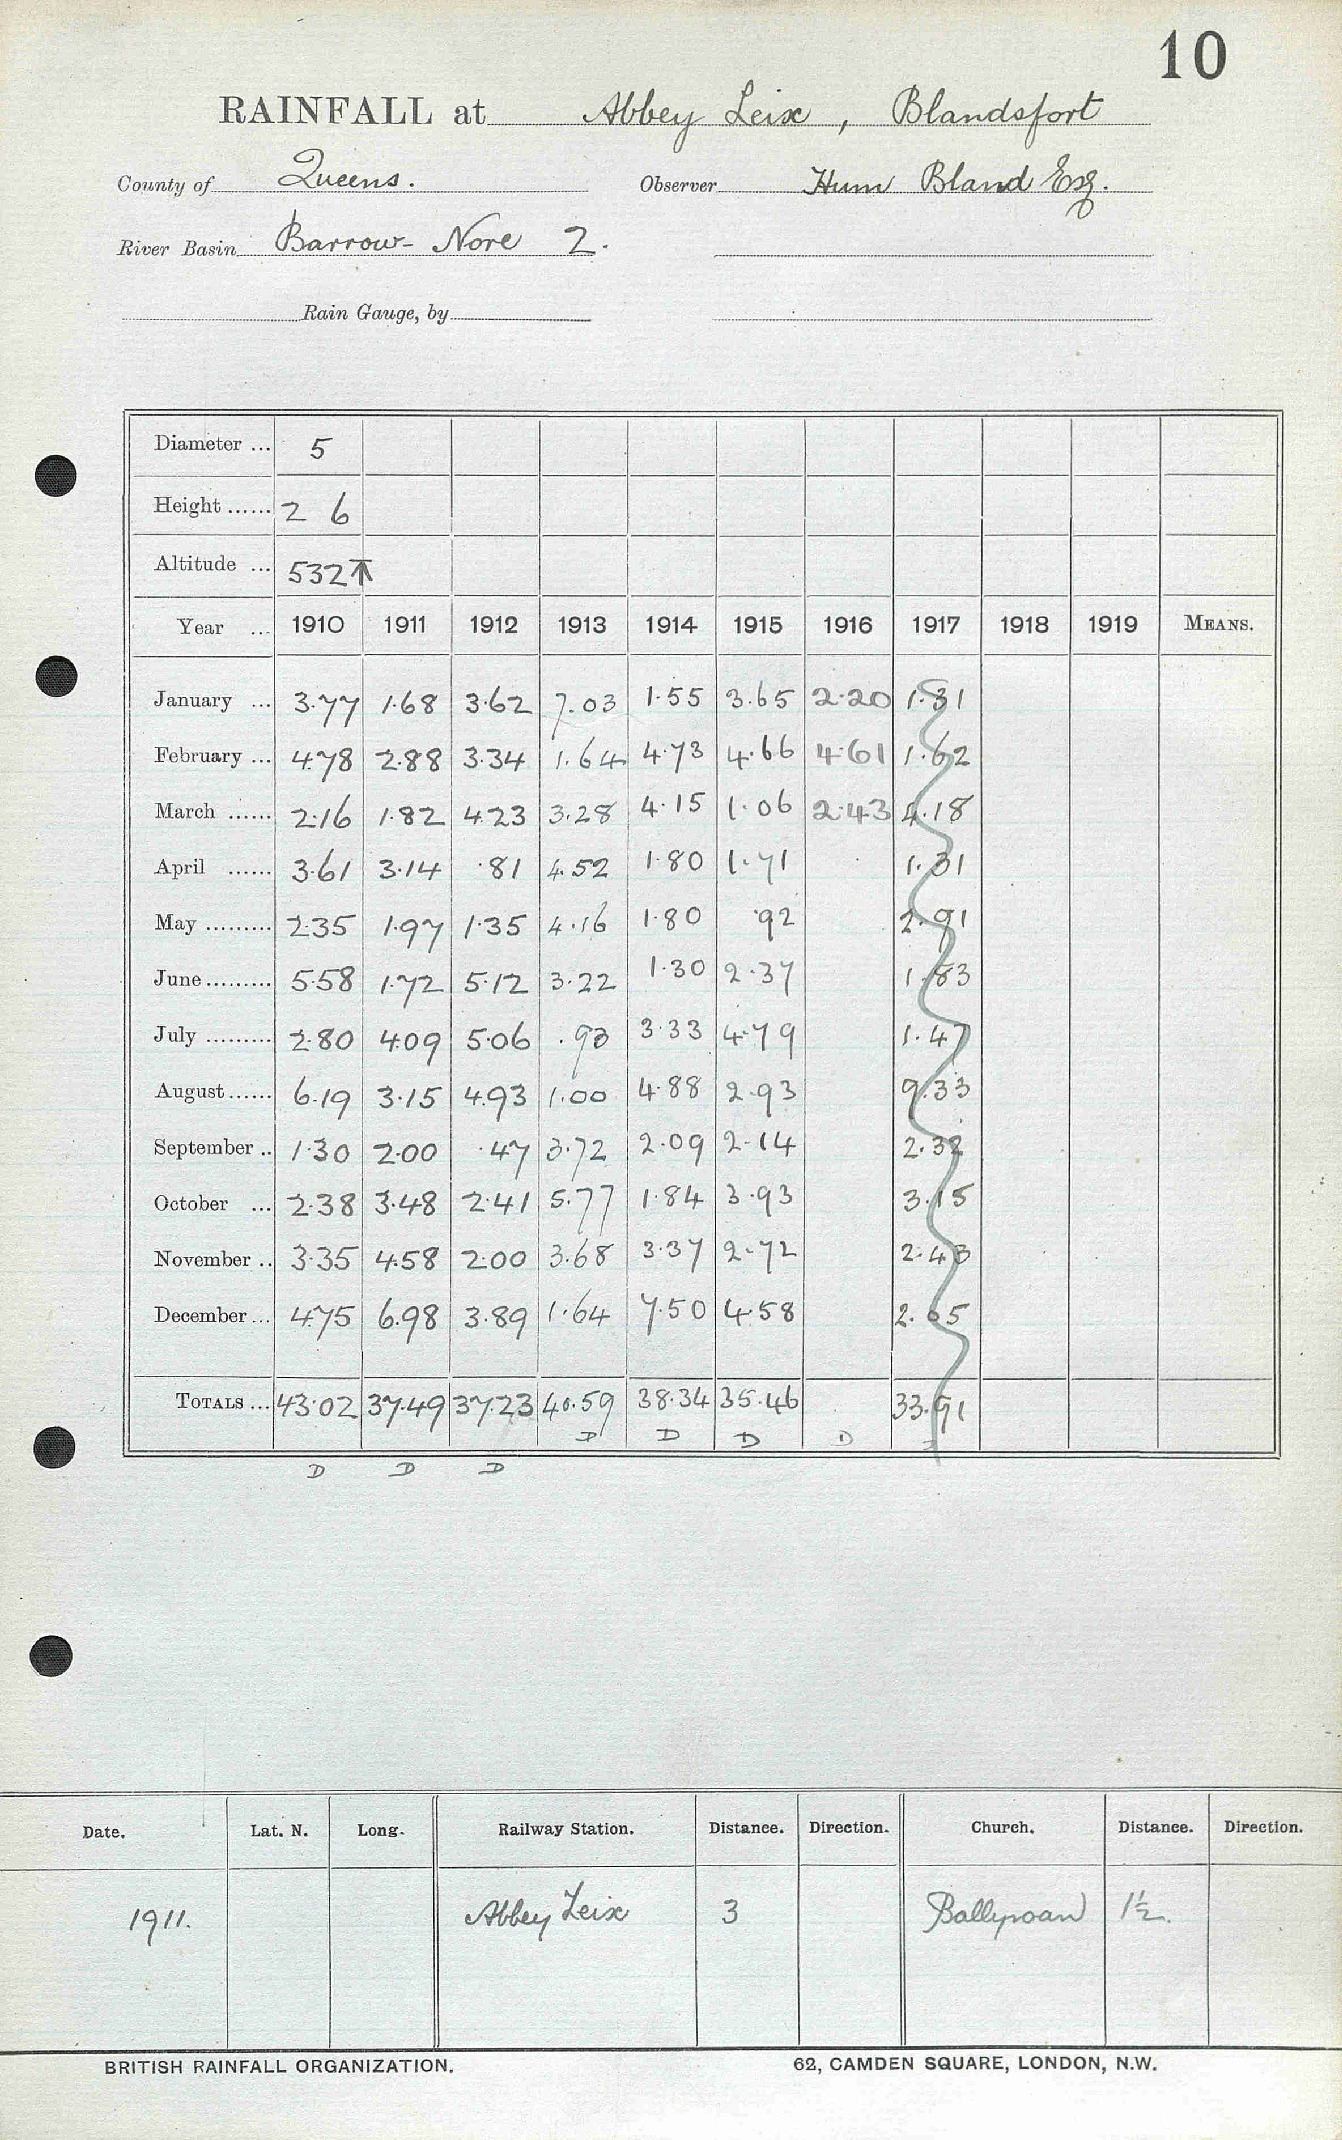 10
RAINFALL at Abbey Leix, Blandsfort
County of Queens. Observer Hum Bland Esq.
River Basin Barrow-Nore 2.
Rain Gauge, by
Diameter ... 5
Height ...... 2 6
Altitude ... 532
Year ... 1910 1911 1912 1913 1914 1915 1916 1917 1918 1919 MEANS.
January ... 3.77 1.68 3.62 7.03 1.55 3.65 2.20 1.31
February ... 4.78 2.88 3.34 1.64 4.73 4.66 4.61 1.62
March ...... 2.16 1.82 4.23 3.28 4.15 1.06 2.43 4.18
April ...... 3.61 3.14 .81 4.52 1.80 1.71 1.31
May ......... 2.35 1.97 1.35 4.16 1.80 .92 2.91
June ......... 5.58 1.72 5.12 3.22 1.30 2.37 1.83
July ......... 2.80 4.09 5.06 .93 3.33 4.79 1.47
August ...... 6.19 3.15 4.93 1.00 4.88 2.93 9.33
September .. 1.30 2.00 .47 3.72 2.09 2.14 2.32
October ... 2.38 3.48 2.41 5.77 1.84 3.93 3.15
November .. 3.35 4.58 2.00 3.68 3.37 2.72 2.43
December ... 4.75 6.98 3.89 1.64 7.50 4.58 2.05
TOTALS ... 43.02 37.49 37.23 40.59 38.34 35.46 33.91
D D D D
D D D
Date. Lat. N. Long. Railway Station. Distance. Direction. Church. Distance. Direction.
1911. Abbey Leix 3 Ballyroan 1½.
BRITISH RAINFALL ORGANIZATION. 62, CAMDEN SQUARE, LONDON, N.W.